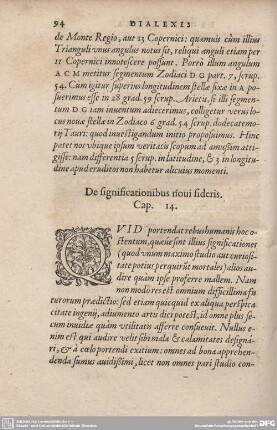 94 DIALEXIS
de Monte Regio, aut 13 Copernici: quamuis cùm illius
Trianguli vnus angulus notus sit, reliqui anguli etiam per
11 Copernici innotescere possunt. Porrò illum angulum
A C M metitur segmentum Zodiaci D G part. 7, scrup.
54. Cùm igitur superius longitudinem stellæ fixæ in A po
suerimus esse in 28 grad. 59 scrup. Arietis, si illi segmen
tum D G iam inuentum adiecerimus, colligetur verus lo
cus nouæ stellæ in Zodiaco 6 grad. 54 scrup. dodecatemo
rij Tauri: quod inuestigandum initio proposuimus. Hinc
patet nos vbique ipsum veritatis scopum ad amussim atti
gisse: nam differentia 5 scrup. in latitudine, & 3 in longitu
dine apud eruditos non habetur alicuius momenti.
De significationibus noui sideris.
Cap. 14.
QVID portendat rebus humanis hoc o
stentum, quæue sint illius significationes
(quod vnum maximo studio aut curiosi-
tate potius perquirũt mortales) alios au
dire quàm ipse proferre mallem. Nam
non modò res est omnium difficillima fu
turorum prædictio: sed etiam quicquid ex aliqua perspica
citate ingenij, adiumento artis dici potest, id omne plus se
cum inuidiæ quàm vtilitatis afferre consueuit. Nullus e-
nim est qui audire velit sibi mala & calamitates designa-
ri, & à cœlo portendi exitium: omnes ad bona apprehen-
denda sumus auidissimi, licet non omnes pari studio con-